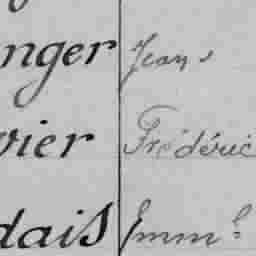 nger Jean
vier Frédéric
dais Emm.el